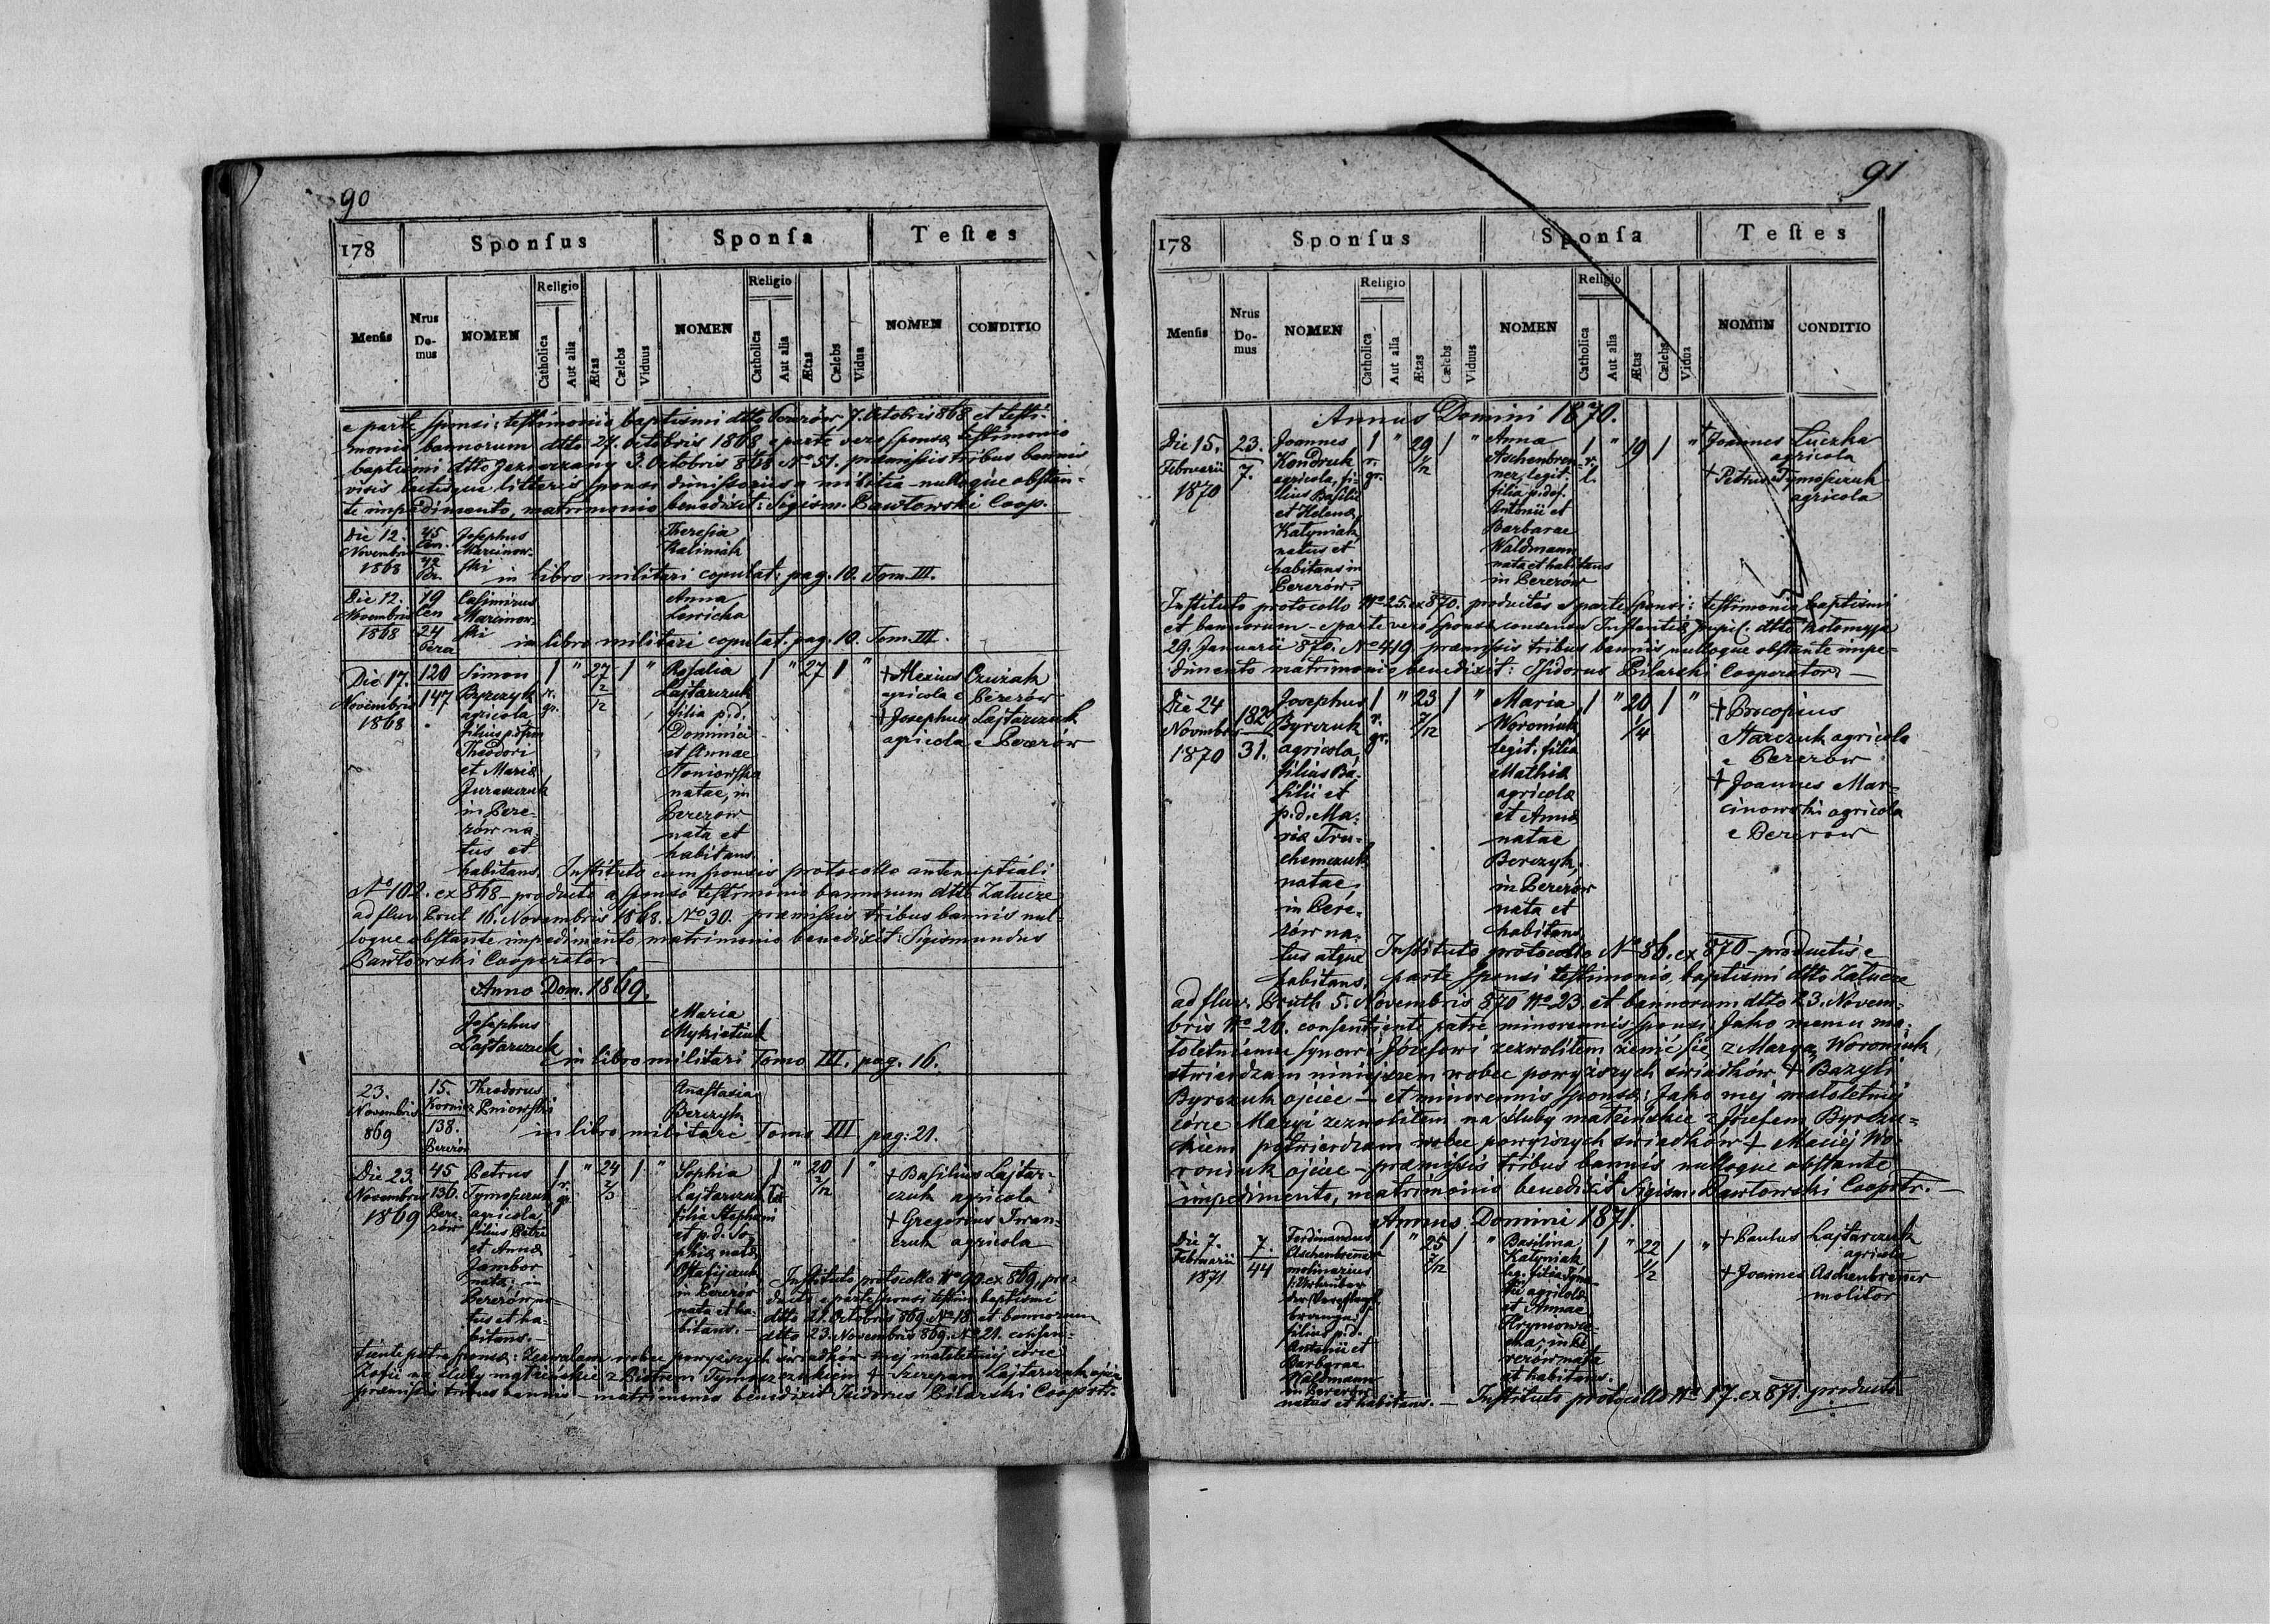 90
178
Sponsus
Sponsa
Testes
Mensis
Nrus Domus
NOMEN
Religio
Catholica
Aut alia
Ætas
Cælebs
Viduus
NOMEN
Religio
Catholica
Aut alia
Ætas
Cælebs
Vidua
NOMEN
CONDITIO
e parte sponsi: testimonia baptismi dtto 7. Octobris 868 et testi-
monia bannorum dtto 27. Octobris 1868 e parte vero sponsæ testimonio
baptismi dtto 3. Octobris 868 No 51. præmissis tribus bannis
visis lectisque litteris sponsi dimissoriis a militia nulloque obstan-
te impedimento, matrimonio benedixit: Sigism. Pawłowski Coop.
Die 12.
Novembris
1868
45
42
Josephus
Marcinow-
ski
Theresia
Kaliniak
in libro militari copulat: pag. 10. Tom. III.
Die 12.
Novembris
1868
19
24
Casimirus
Marcinow-
ski
Anna
in libro militari copulat. pag. 10. Tom. III.
Die 17.
Novembris
1868
120
147
Simon
Byrczyk
agricola
filius
Theodori
et Mariæ
in Pere-
rów na-
tus et
habitans.
1
r.
gr.
"
27
2/12
1
"
Rosalia
Lajtarczuk
filia p. d.
Dominici
et Annae
natae, in
Pererow
nata et
habitans.
1
"
27
1
"
† Alexius
agricola e Pererów
† Josephus Lajtarczuk
agricola e Pererów
Instituto cum sponsis protocollo antenuptiali
No 102. ex 868 – producto a sponso testimonio bannorum dtto Załucze
ad fluv. Prut 16. Novembris 1868. No 30. præmissis tribus bannis nul-
loque obstante impedimento matrimonio benedixit: Sigismundus
Pawłowski Cooperator.
Anno Dom. 1869.
Josephus
Lajtarczuk
Maria
Mykietiuk
in libro militari Tomo III. pag. 16.
23.
Novembris
869
15.
Kornicz
138.
Pererów
Theodorus
Pniowski
Anastasia
Berczyk
in libro militari Tomo III pag: 21.
Die 23.
Novembris
1869
45
136.
Pere-
rów
Petrus
Tymoficzuk
agricola
filius Petri
et Annæ
Jambor
natæ, in
Pererów na-
tus et ha-
bitans.
1
r.
gr.
"
24
2/3
1
"
Sophia
Lajtarczuk
filia Stephani
et p. d. So-
phiæ natæ
in Pererów
nata et ha-
bitans.
1
"
20
2/12
1
"
† Basilius Lajtar-
czuk agricola
† Gregorius Iwan-
czuk agricola
Instituto protocollo No 90. ex 869, pro-
ducto e parte sponsi testim. baptismi
dtto 21. Octobris 869. No 18. et bannorum
dtto 23. Novembris 869. No 21. consen-
tiente patre sponsæ: Zezwalam wobec powyższych świadków mej małoletniej córce
Zofii na śluby małżeńskie z Piotrem Tymofczukiem † Szczepan Lajtarczuk ojciec
præmissis tribus bannis – matrimonio benedixit Isidorus Pilarski Cooprtr.
91
178
Sponsus
Sponsa
Testes
Mensis
Nrus Domus
NOMEN
Religio
Catholica
Aut alia
Ætas
Cælebs
Viduus
NOMEN
Religio
Catholica
Aut alia
Ætas
Cælebs
Vidua
NOMEN
CONDITIO
Annus Domini 1870.
Die 15.
Februarii
1870
23.
7.
Joannes
Kondruk
agricola, fi-
lius Basilii
et Helenæ
Katyniak,
natus et
habitans in
Pererów.
1
r.
gr.
"
29
1
"
Anna
Aschenbren-
ner, legit.
filia p. def.
Antonii et
Barbarae
Waldmann
nata et habitans
in Pererów
1
r.
l.
"
19
1
"
† Joannes Łuczka
agricola
† Petrus Tymoficzuk
agricola
Instituto protocollo No 25. ex 870. productis e parte sponsi: testimonio baptismi
et bannorum – e parte vero sponsæ consensu Instantiæ pupil. dtto Kołomyja
29. Januarii 870. No 419 præmissis tribus bannis nulloque obstante impe-
dimento matrimonio benedixit: Isidorus Pilarski Cooperator. –
Die 24
Novembris
1870
182
31.
Josephus
Byrczuk
agricola,
filius Ba-
silii et
p. d. Ma-
riæ Tru-
chemczuk
natae,
in Pere-
rów na-
tus atque
habitans.
1
r.
gr.
"
23
7/12
1
"
Maria
Woroniuk
legit. filia
Mathiæ
agricolæ
et Annæ
natae
Berczyk,
in Pererów
nata et
habitans.
1
"
20
1/4
1
"
† Procopius
Starczuk agricola
e Pererów
† Joannes Mar-
cinowski agricola
e Pererów
Instituto protocollo No 86. ex 870 – productis e
parte sponsi testimonio baptismi dtto Załucze
ad fluv. Pruth 5. Novembris 870 No 23 et bannorum dtto 23. Novem-
bris No 26. consentiente patre minorennis sponsi: Jako memu ma-
łoletniemu synowi Józefowi zezwoliłem żenić się z Maryą Woroniuk
stwierdzam niniejszem wobec powyższych świadków † Bazyli
Byrczuk ojciec – et minorennis sponsæ: Jako mej małoletniej
córce Maryi zezwoliłem na śluby małżeńskie z Józefem Byrczu-
kiem potwierdzam wobec powyższych świadków † Maciej Wo-
roniuk ojciec – præmissis tribus bannis nulloque obstante
impedimento, matrimonio benedixit Sigism. Pawłowski Cooprtr. –
Annus Domini 1871.
Die 7.
Februarii
1871
7.
44
Ferdinandus
Aschenbrenner
molinarius
filius p. d.
Antonii et
Barbarae
Waldmann
in Pererów
natus et habitans. –
1
"
25
7/12
1
"
Basilina
Katyniak
leg. filia
agricolæ
et Annae
in Pe-
rerów nata
et habitans.
1
"
22
1/2
1
"
† Paulus Lajtarczuk
agricola
† Joannes Aschenbrenner
molitor
Instituto protocollo No 17. ex 871. producto